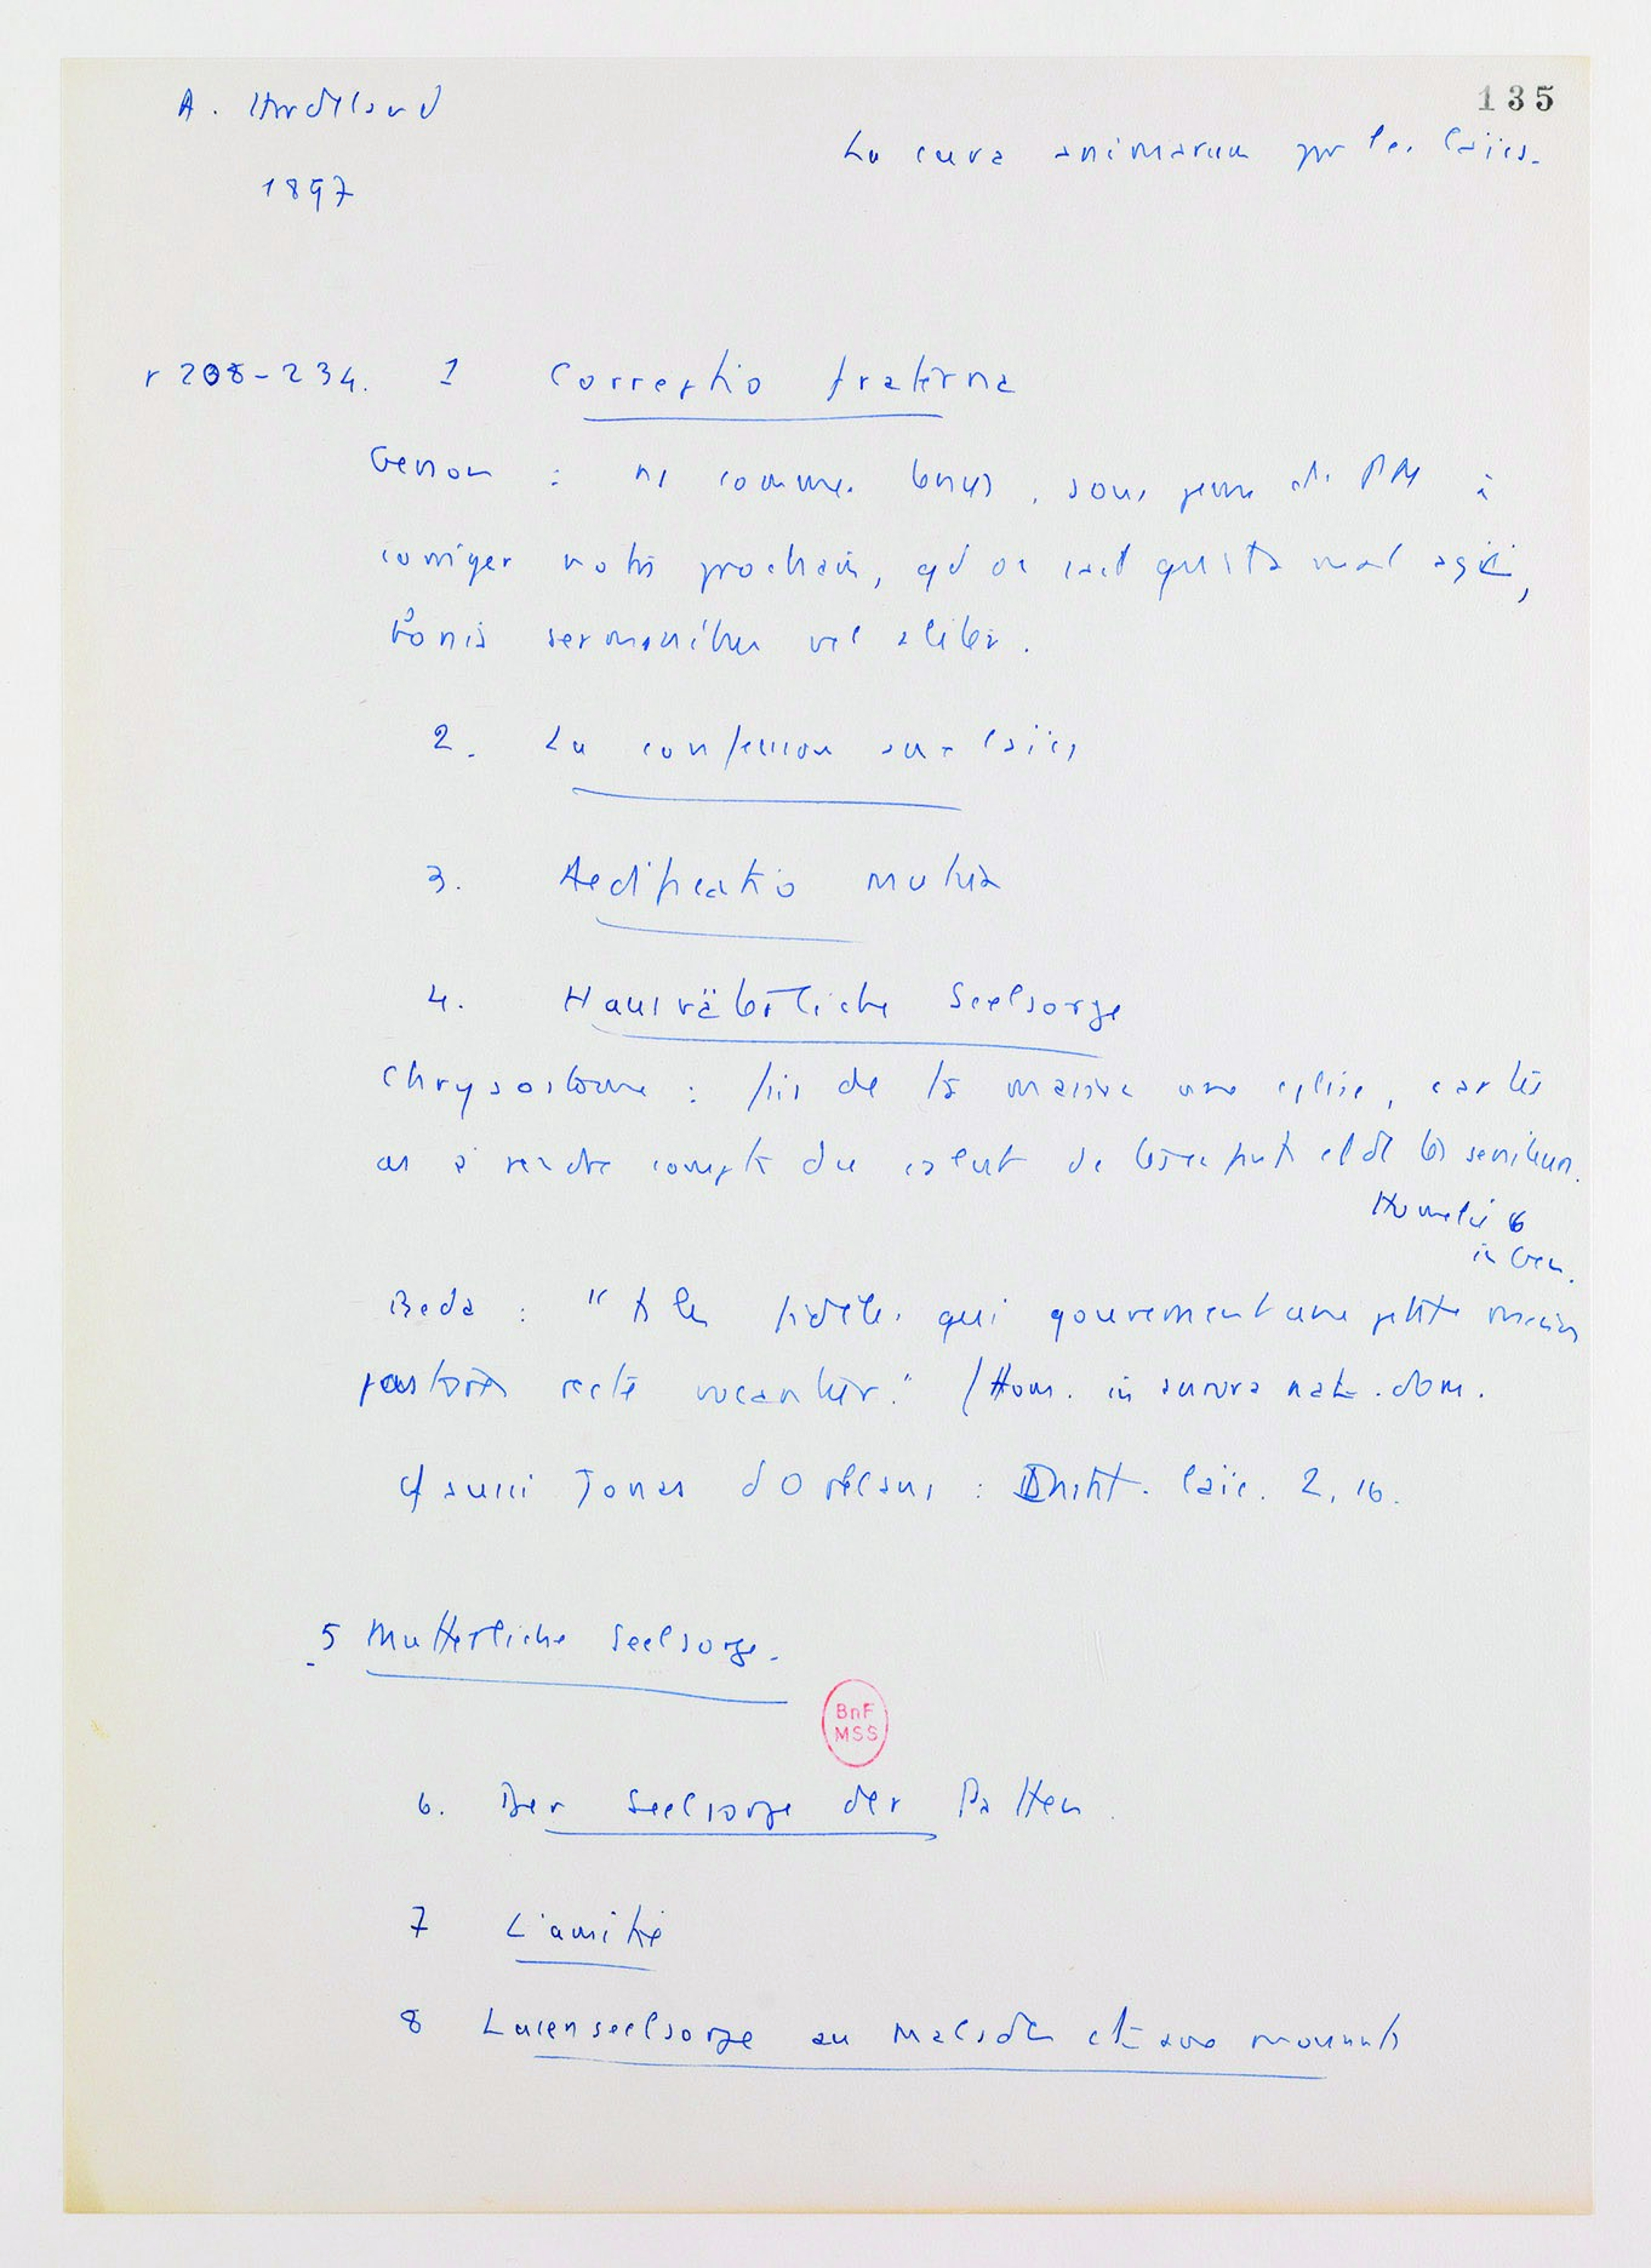 A. Hardeland
135
La cura animarum par les laïcs.
1897
p 208-234. 1 Correptio fraterna
Gerson : ns sommes tenus, sous peine de PM à
corriger notre prochain, qd on sait qu'il a mal agi,
bonis sermonibus vel aliter.
2. La confession aux laïcs
3. Aedificatio mutua
4. Hausväterliche Seelsorge
Chrysostome : fais de ta maison une église, car tu
as à rendre compte du salut de tes enfants et de tes serviteurs.
Homélie 6
in Gen.
Beda : " les fidèles qui gouvernent une petite maison
pastores recte vocantur." (Hom. in aurora nat. dom.
cf aussi Jonas d'Orléans : Instit. laïc. 2, 16.
5 Mutterliche Seelsorge.
BnF
MSS
6. Der Seelsorge der Paten.
7 L'amitié
8 Laienseelsorge au malade et aux mourants